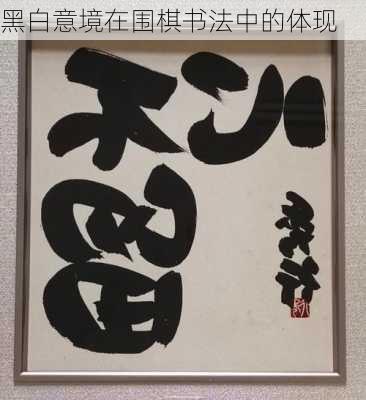 黑白意境在围棋书法中的体现
不留